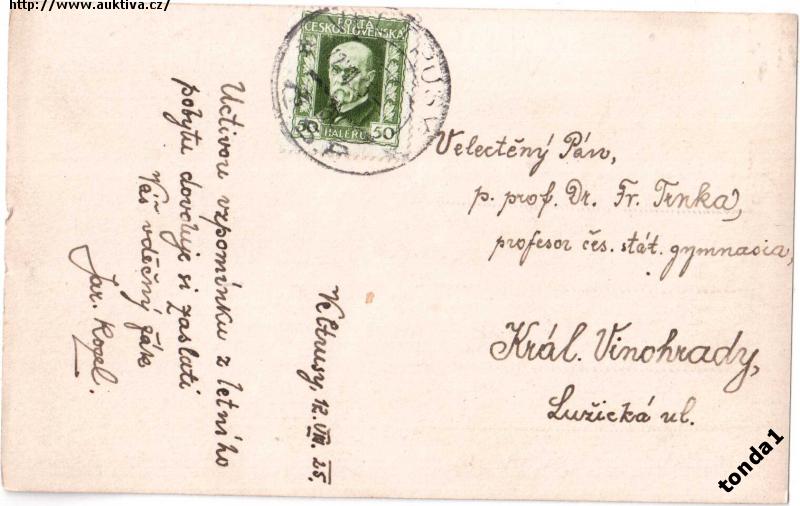 http://www.auktiva.cz/
POŠTA
ČESKOSLOVENSKÁ
50 HALÉŘŮ 50
Uctivou vzpomínku z letního
pobytu dovoluje si zaslati
Váš vděčný žák
Jar. Kozel.
Kltrusy, 12. VIII. 25.
Velectěný Pán,
p. prof. Dr. Fr. Trnka,
profesor čes. stát. gymnasia,
Král. Vinohrady,
Lužická ul.
tonda1